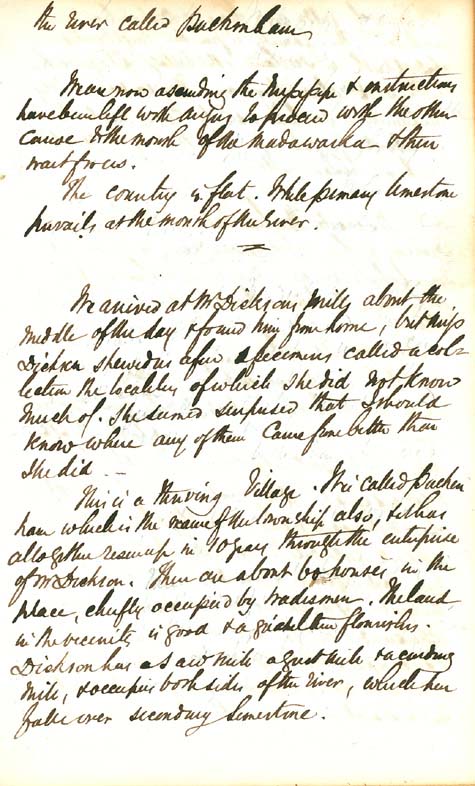 the river called Buckenham
We are now ascending the Mississippi & instructions
have been left with Angus to proceed with the other
Canoe to the mouth of the Madawaska & there
wait for us.
The country is flat. While primary limestone
prevails at the mouth of the river.
We arrived at Mr Dicksons Mills about the
middle of the day & found him from home, but Miss
Dickson shewed us a few specimens called a col-
lection the localities of which she did not know
much of. She seemed surprised that I should
know where any of them came from better than
she did. –
This is a thriving Village. It is called Packen
ham which is the name of the township also, & it has
altogether risen up in 10 years through the enterprise
of Mr Dickson. There are about 60 houses in the
place, chiefly occupied by tradesmen. The land
in the vicinity is good & agriculture flourishes.
Dickson has a Saw Mill a grist Mill & a carding
Mill, & occupies both sides of the River, which here
falls over secondary limestone.